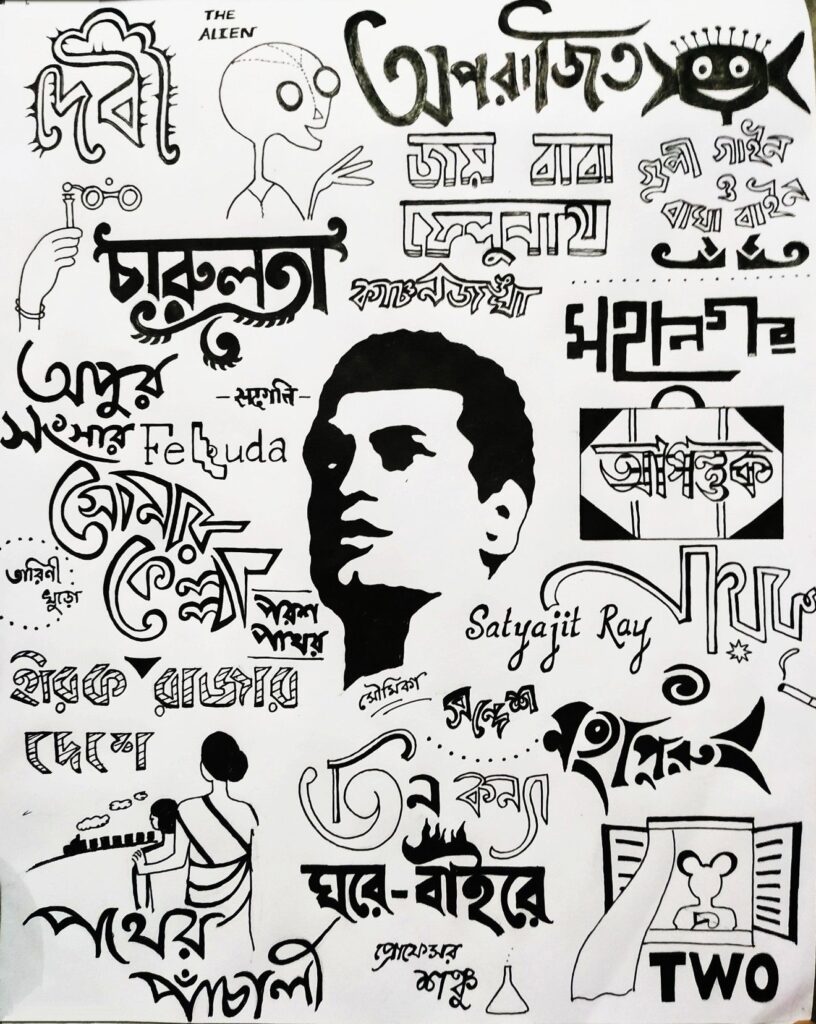 দেবী
THE
ALIEN
অপরাজিত
জয় বাবা
ফেলুনাথ
গুপী গাইন
ও
বাঘা বাইন
চারুলতা
কাঞ্চনজঙ্ঘা
মহানগর
অপুর
সংসার
-সদগতি-
Feluda
আগন্তুক
সোনার
কেল্লা
তারিণী
খুড়ো
পরশ
পাথর
Satyajit Ray
নায়ক
হীরক রাজার
দেশে
মৌমিতা
সন্দেশ
মহাপুরুষ
তিন কন্যা
ঘরে-বাইরে
পথের
পাঁচালী
প্রোফেসর
শঙ্কু
TWO